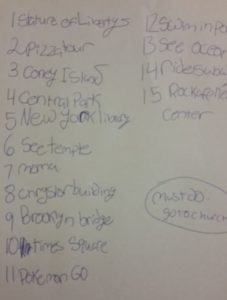 1 Stature of Libertys
2 Pizza tour
3 Coney Island
4 Central Park
5 New York library
6 See temple
7 moma
8 Chrystor building
9 Brooklyn bridge
10 times Square
11 Pokemon GO
12 Swim in
13 See ocean
14 ride
15 Rockafeller
center
must do
go to church